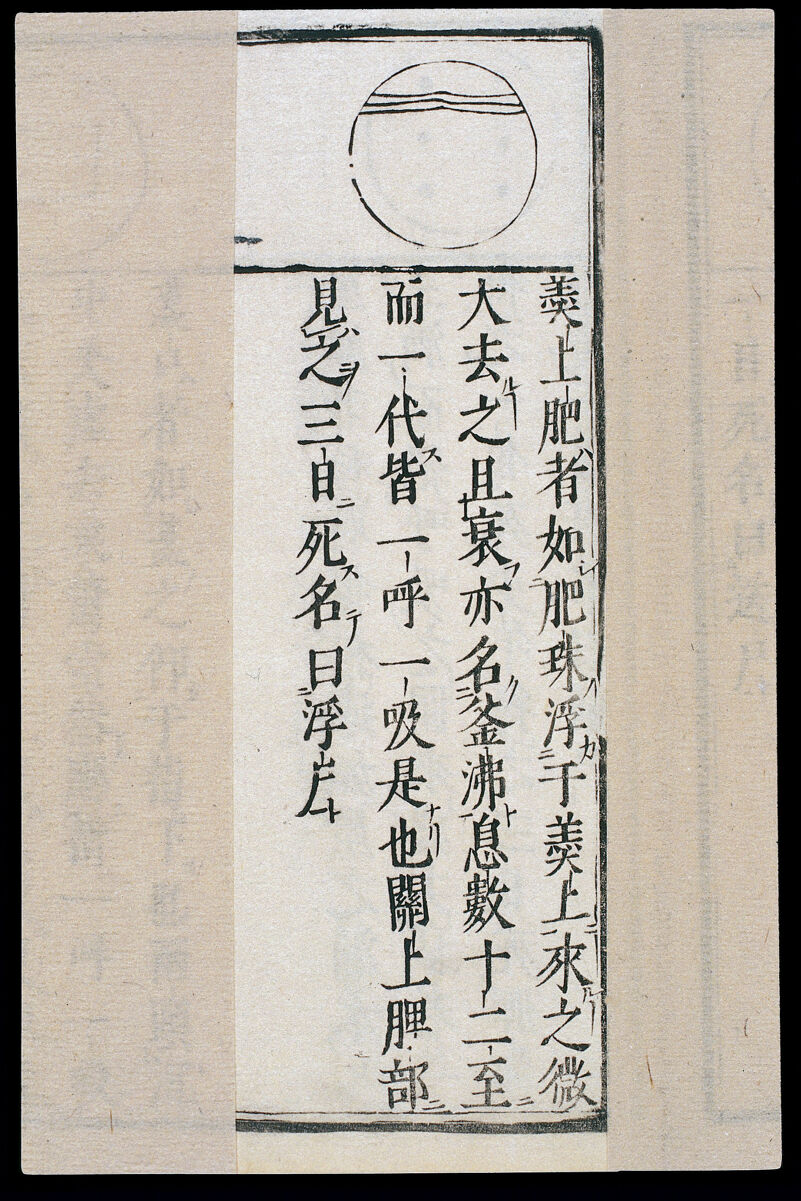 羮上肥者如肥珠浮于羮上來之微
大去之且衰亦名釜沸息數十二至
而一代皆一呼一吸是也關上脾部
見之三日死名曰浮岸